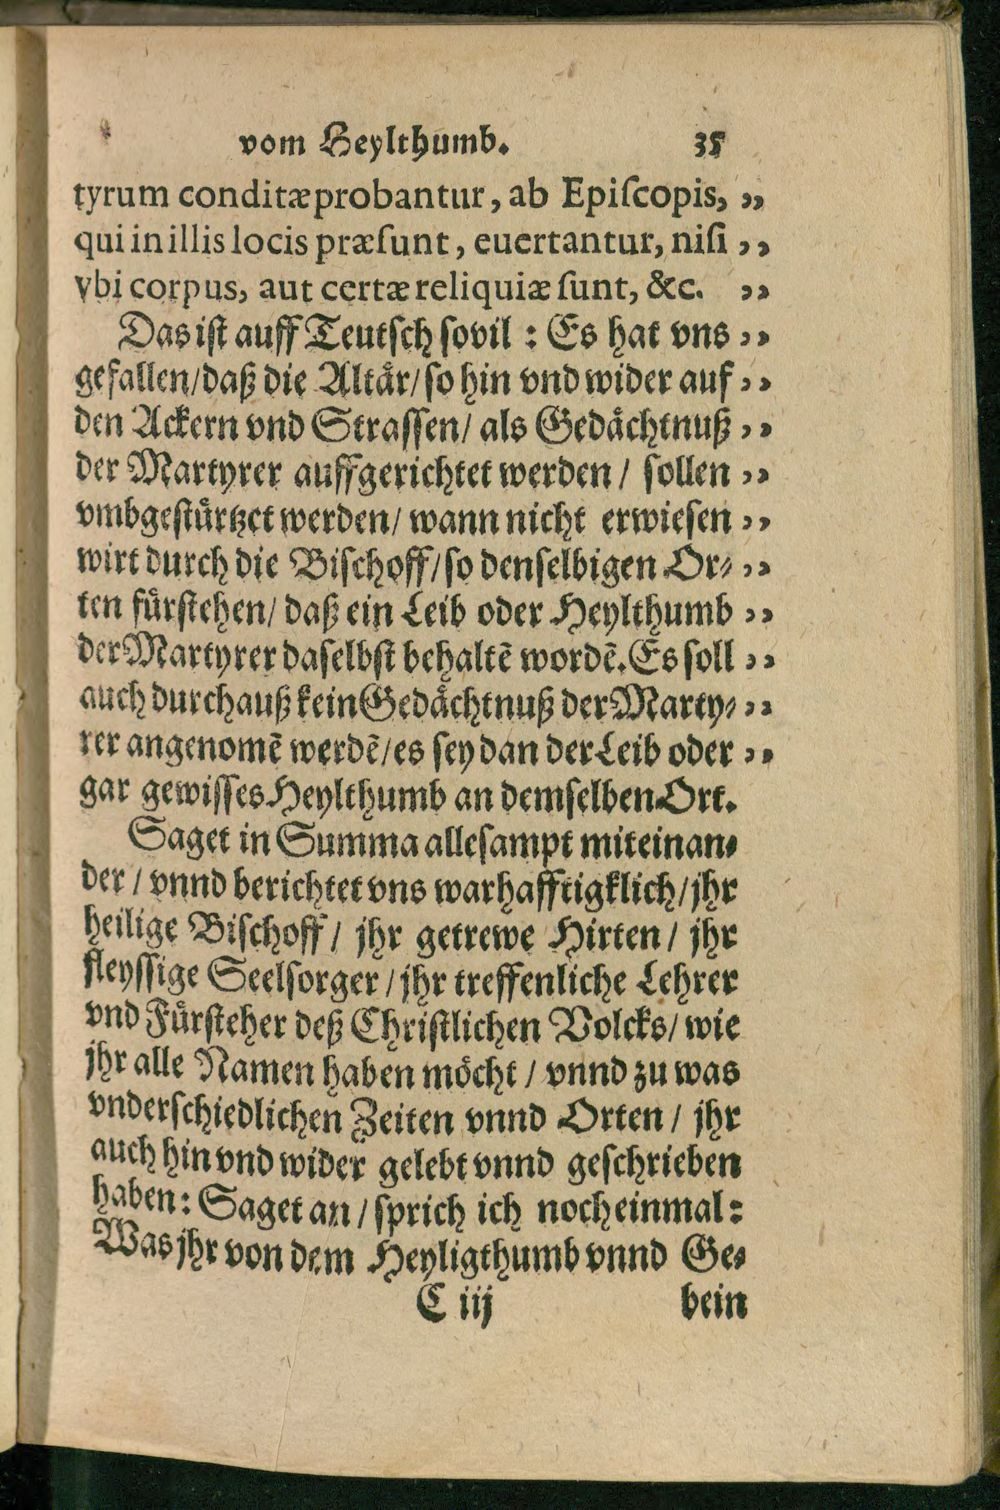 vom Heylthumb. 35
tyrum conditæ probantur, ab Epiſcopis, „
qui in illis locis præſunt, euertantur, niſi „
vbi corpus, aut certæ reliquiæ ſunt, &c. „
Das iſt auff Teutſch ſovil : Es hat vns „
gefallen/ daß die Altaͤr/ ſo hin vnd wider auf „
den Ackern vnd Straſſen/ als Gedaͤchtnuß „
der Martyrer auffgerichtet werden / ſollen „
vmbgeſtuͤrtzet werden/ wann nicht erwieſen „
wirt durch die Biſchoff/ ſo denſelbigen Or⸗ „
ten fuͤrſtehen/ daß ein Leib oder Heylthumb „
der Martyrer daſelbſt behaltẽ wordẽ. Es ſoll „
auch durchauß kein Gedaͤchtnuß der Marty⸗ „
rer angenomẽ werdẽ/ es ſey dan der Leib oder „
gar gewiſſes Heylthumb an demſelben Ort.
Saget in Summa alleſampt miteinan⸗
der / vnnd berichtet vns warhafftigklich/ jhr
heilige Biſchoff / jhr getrewe Hirten / jhr
fleyſſige Seelſorger / jhr treffenliche Lehrer
vnd Fuͤrſteher deß Chriſtlichen Volcks/ wie
jhr alle Namen haben moͤcht / vnnd zu was
vnderſchiedlichen Zeiten vnnd Orten / jhr
auch hin vnd wider gelebt vnnd geſchrieben
haben: Saget an / ſprich ich noch einmal:
Was jhr von dem Heyligthumb vnnd Ge⸗
C iij bein